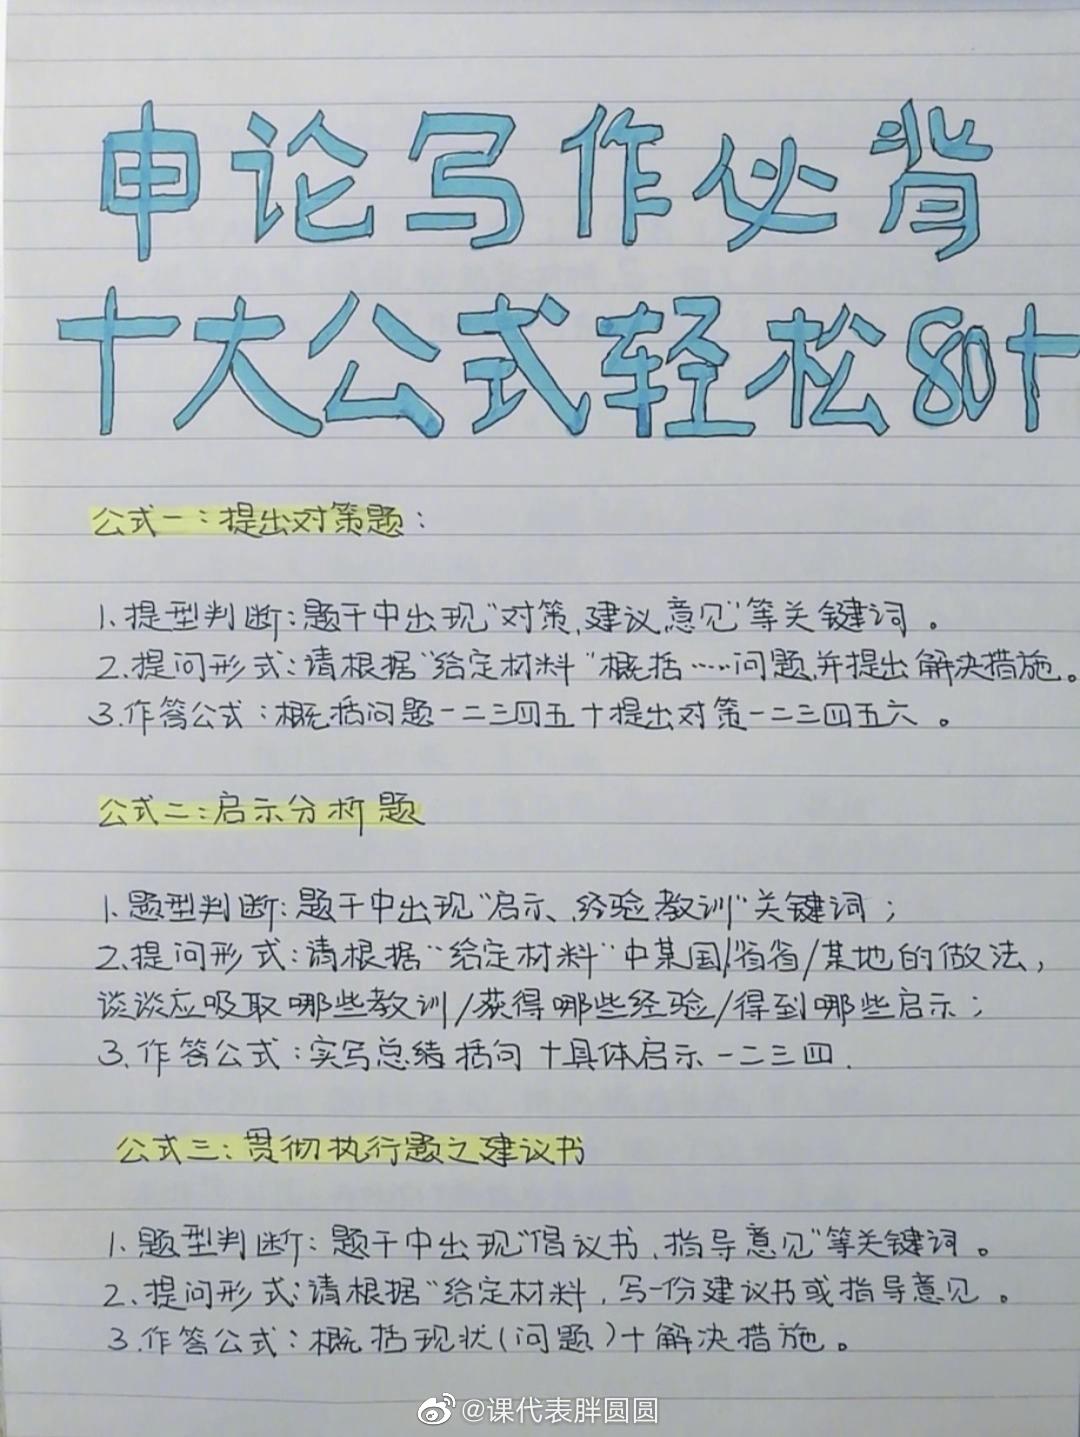 申论写作必背
十大公式轻松80+
公式一：提出对策题：
1、提型判断：题干中出现"对策、建议、意见"等关键词。
2、提问形式：请根据"给定材料"概括……问题，并提出解决措施。
3.作答公式：概括问题一二三四五+提出对策一二三四五六。
公式二：启示分析题
1、题型判断：题干中出现"启示、经验教训"关键词；
2、提问形式：请根据"给定材料"中某国/省省/某地的做法，
谈谈应吸取哪些教训/获得哪些经验/得到哪些启示；
3.作答公式：实写总结括句+具体启示一二三四.
公式三：贯彻执行题之建议书
1、题型判断：题干中出现"倡议书、指导意见"等关键词。
2、提问形式：请根据"给定材料，写一份建议书或指导意见。
3.作答公式：概括现状(问题)+解决措施。
@课代表胖圆圆